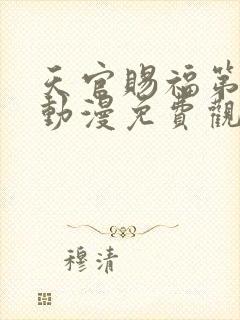 天官賜福第
動漫免費觀
穆清